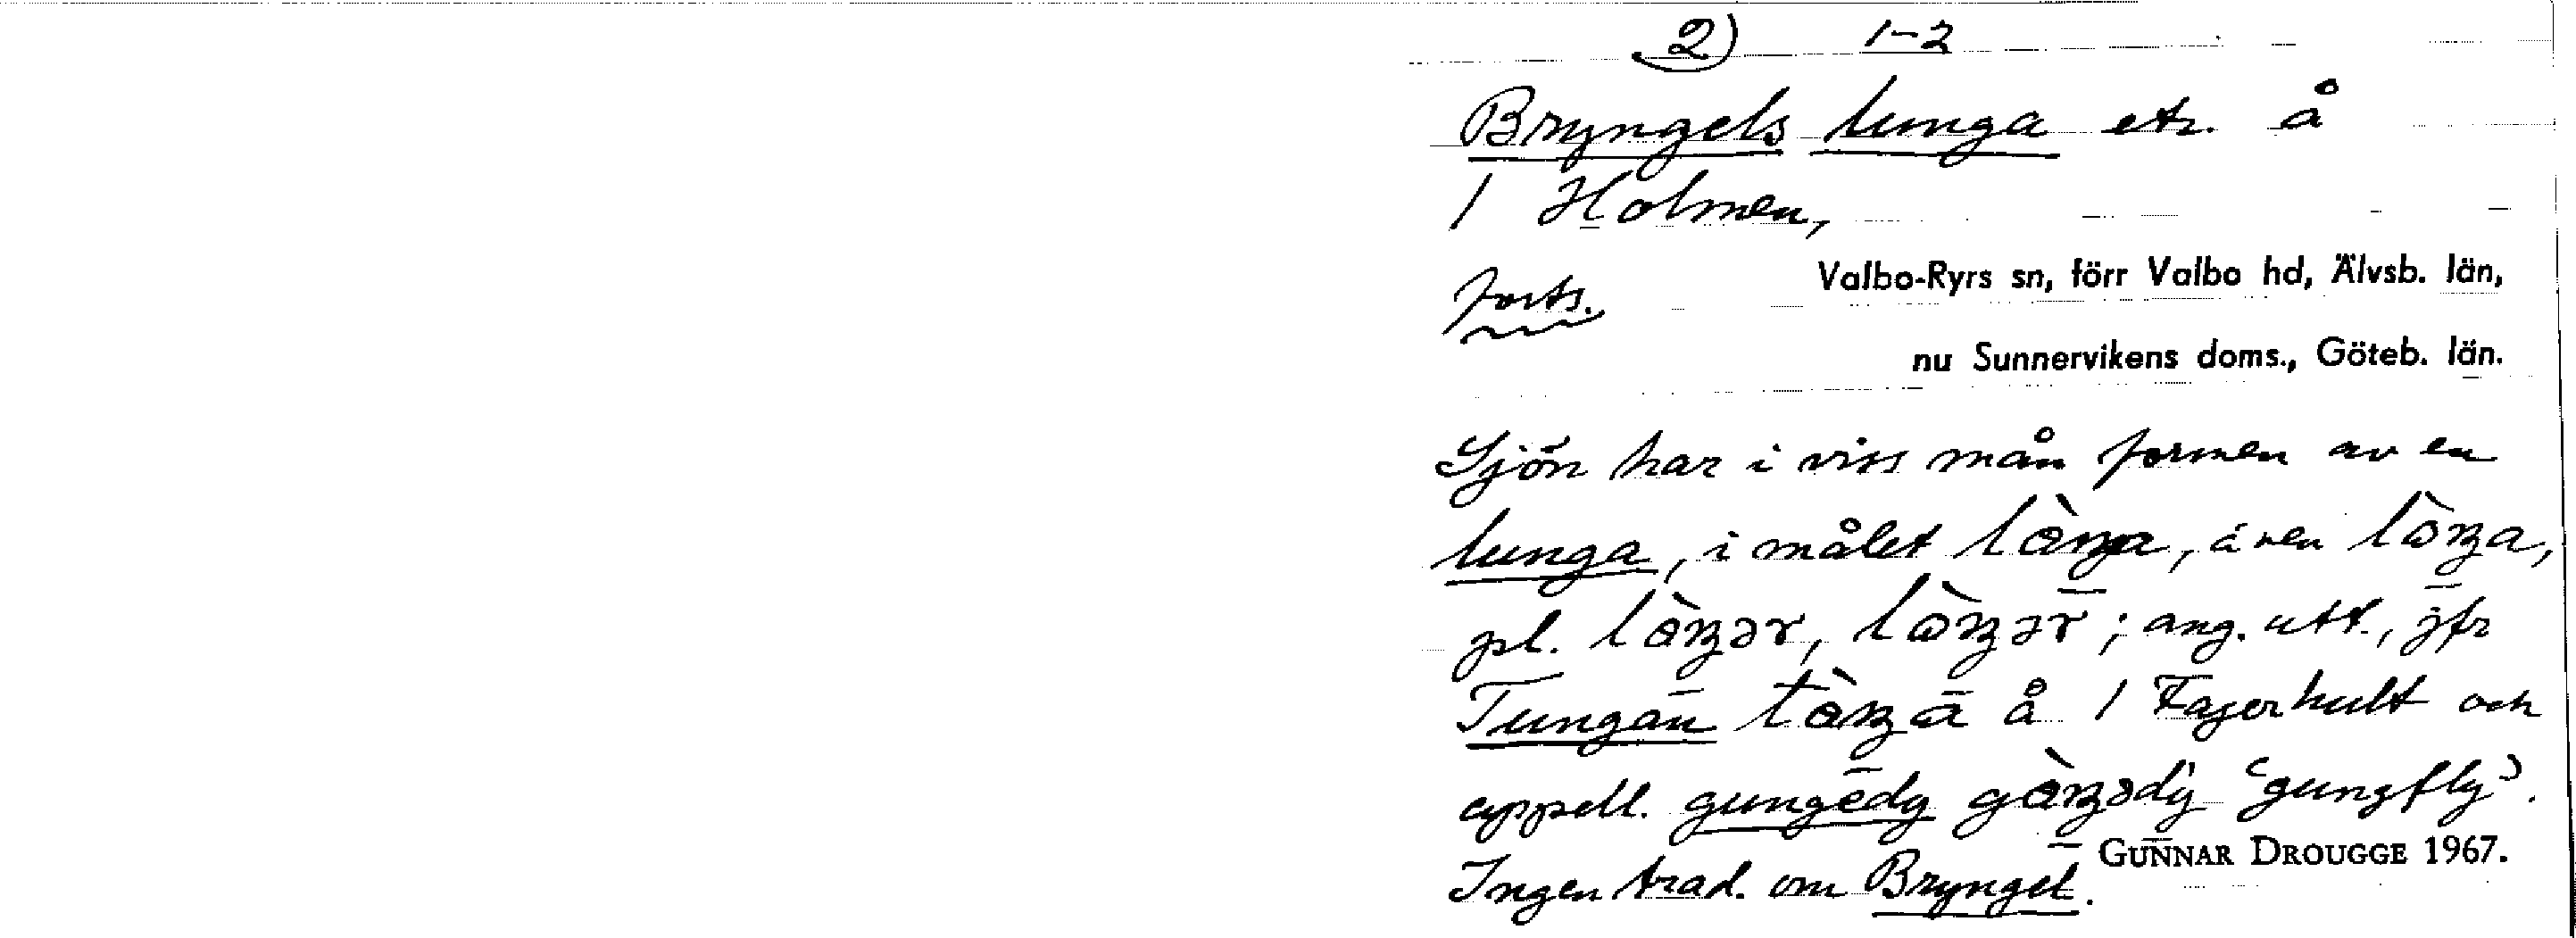 2) 1-2
Bryngels lunga etc. å
1 Holmen,
forts. Valbo-Ryrs sn, förr Valbo hd, Älvsb. län,
nu Sunnervikens doms., Göteb. län.
Sjön har i viss mån formen av en
lunga, i målet även
pl. ; ang. utt., jfr
Tungan å 1 Fagerhult och
appell. gungedy 'gungfly'.
GUNNAR DROUGGE 1967.
Ingen trad. om Bryngel.